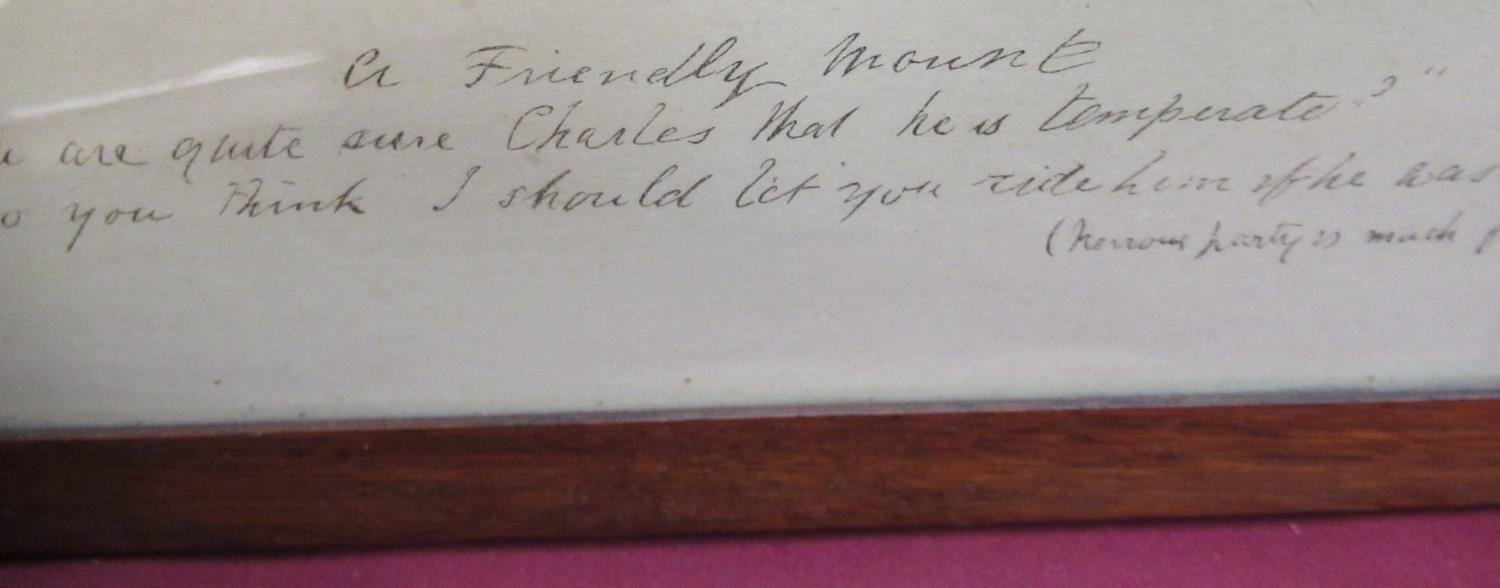 A Friendly Mount
are quite sure Charles that he is temperate?"
you think I should let you ride him if he was
(Nervous party is much